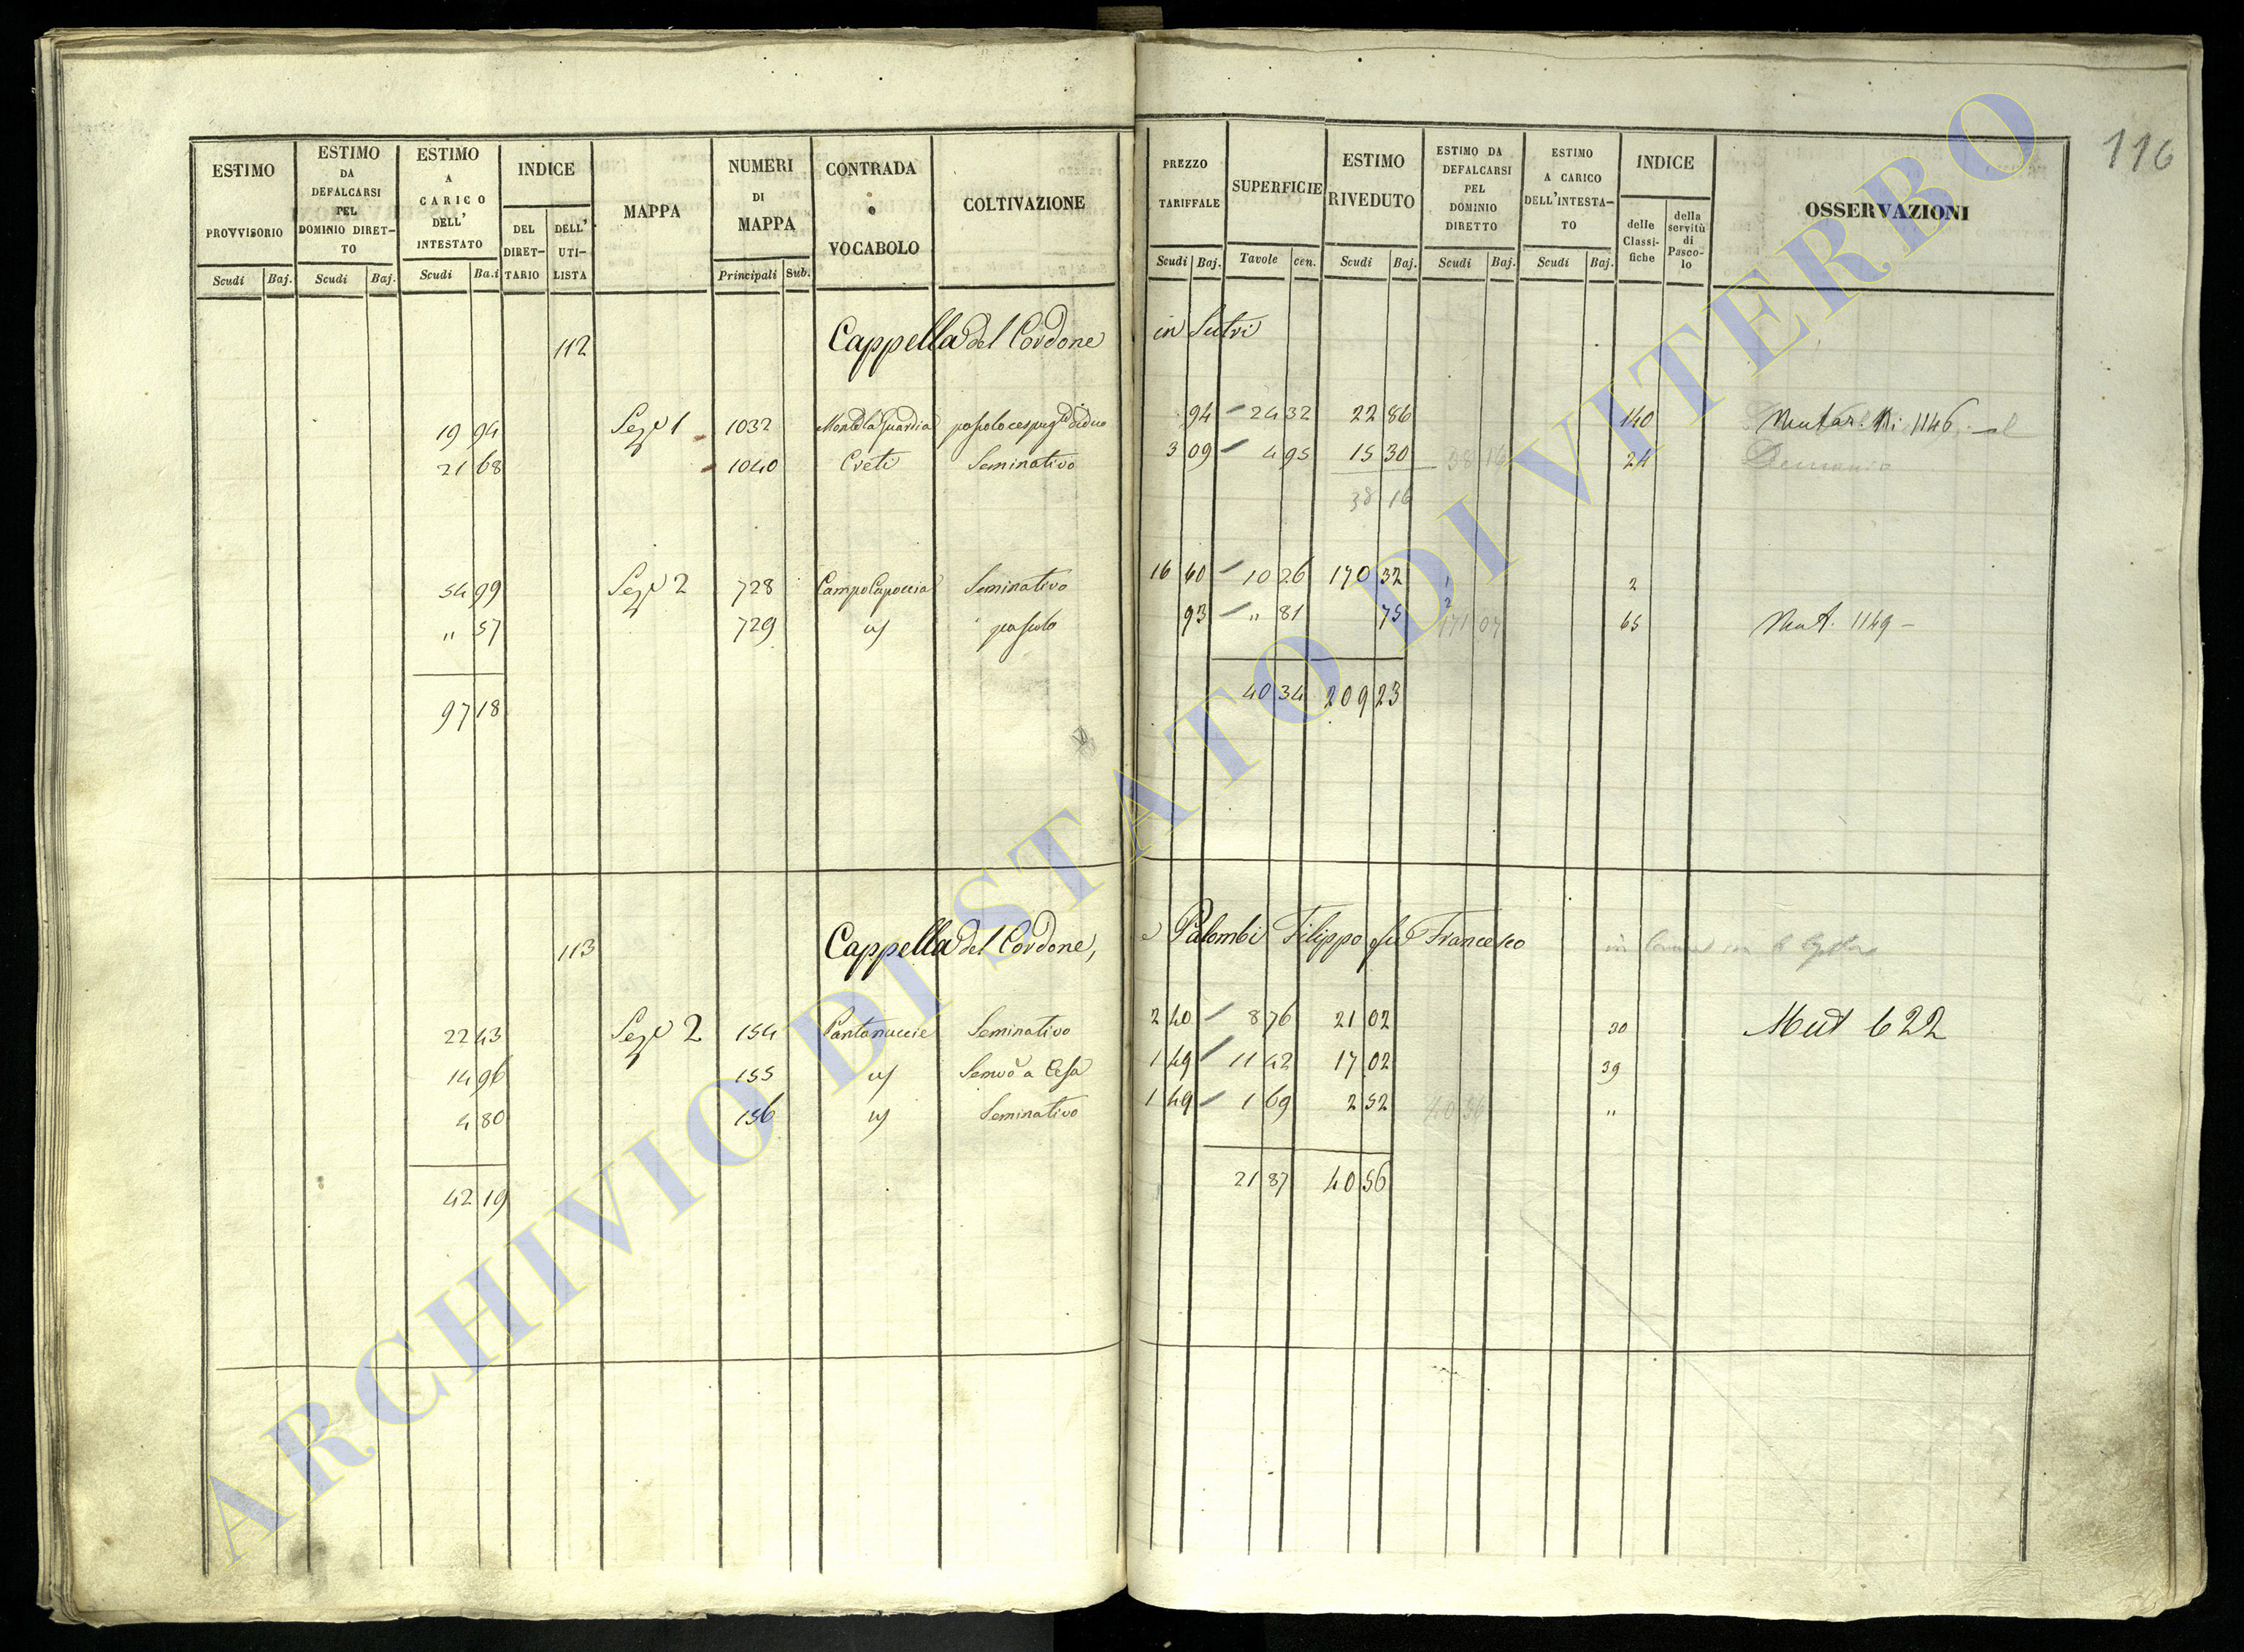 116
ESTIMO PROVVISORIO Scudi Baj.
ESTIMO DA DEFALCARSI PEL DOMINIO DIRET-TO Scudi Baj.
ESTIMO A CARICO DELL' INTESTATO Scudi Ba.i
INDICE DEL DIRET-TARIO DELL' UTI-LISTA
MAPPA
NUMERI DI MAPPA Principali Sub.
CONTRADA o VOCABOLO
COLTIVAZIONE
PREZZO TARIFFALE Scudi Baj.
SUPERFICIE Tavole cen.
ESTIMO RIVEDUTO Scudi Baj.
ESTIMO DA DEFALCARSI PEL DOMINIO DIRETTO Scudi Baj.
ESTIMO A CARICO DELL'INTESTA-TO Scudi Baj.
INDICE delle Classi-fiche della servitù di Pasco-lo
OSSERVAZIONI
112 Cappella del Cordone in Sutri
19 94 Seze 1 1032 Monte la Guardia 94 24 32 22 86 140 1146
21 68 1040 Creti Seminativo 3 09 4 95 15 30 38 16 24 Demanio
38 16
54 99 Seze 2 728 Campo Capoccia Seminativo 16 60 10 26 170 32 2
" 57 729 pascolo 93 " 81 75 171 07 65 Mut. 1149 -
97 18 40 34 209 23
113 Cappella del Cordone, e Palombi Filippo fu Francesco
22 43 Seze 2 154 Pantanuccie Seminativo 2 40 8 76 21 02 30 Mut 622
14 96 155 1 49 11 42 17 02 39
4 80 156 Seminativo 1 49 1 69 2 52 40 56 "
42 19 21 87 40 56
ARCHIVIO DI STATO DI VITERBO